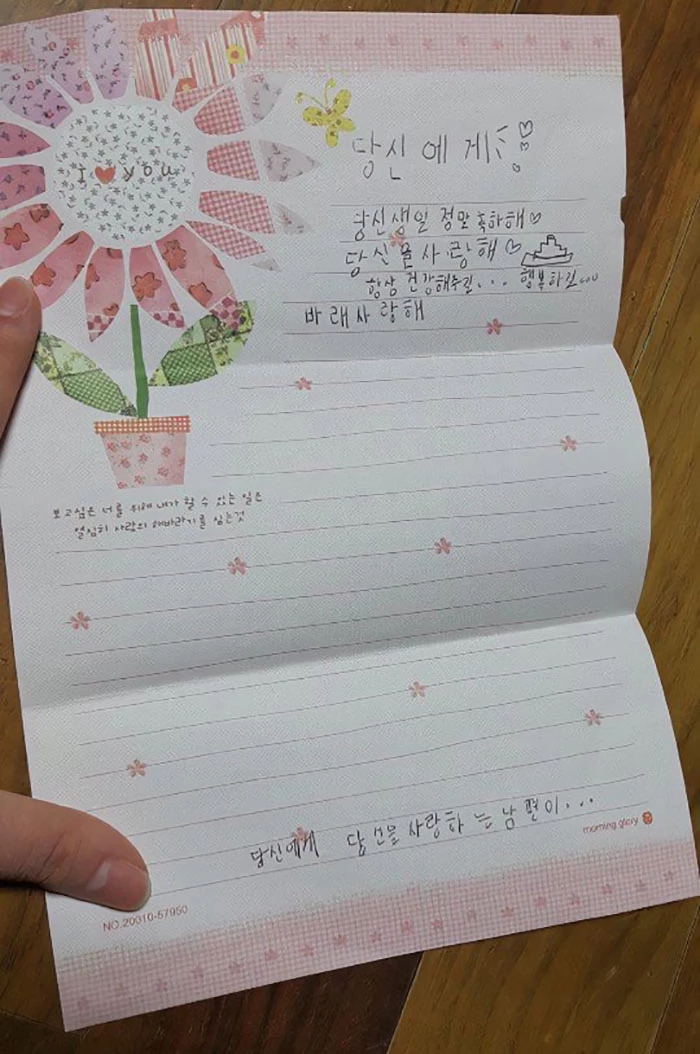 I ♥ you
당신에게 ♡
당신생일 정말 축하해♡
당신을사랑해 ♡
항상 건강해주길... 행복하길...
바래사랑해
보고싶은 너를 위해 내가 할 수 있는 일은
열심히 사랑의 해바라기를 심는것
당신에게 당신을 사랑하는 남편이...
morning glory
NO.20010-57950